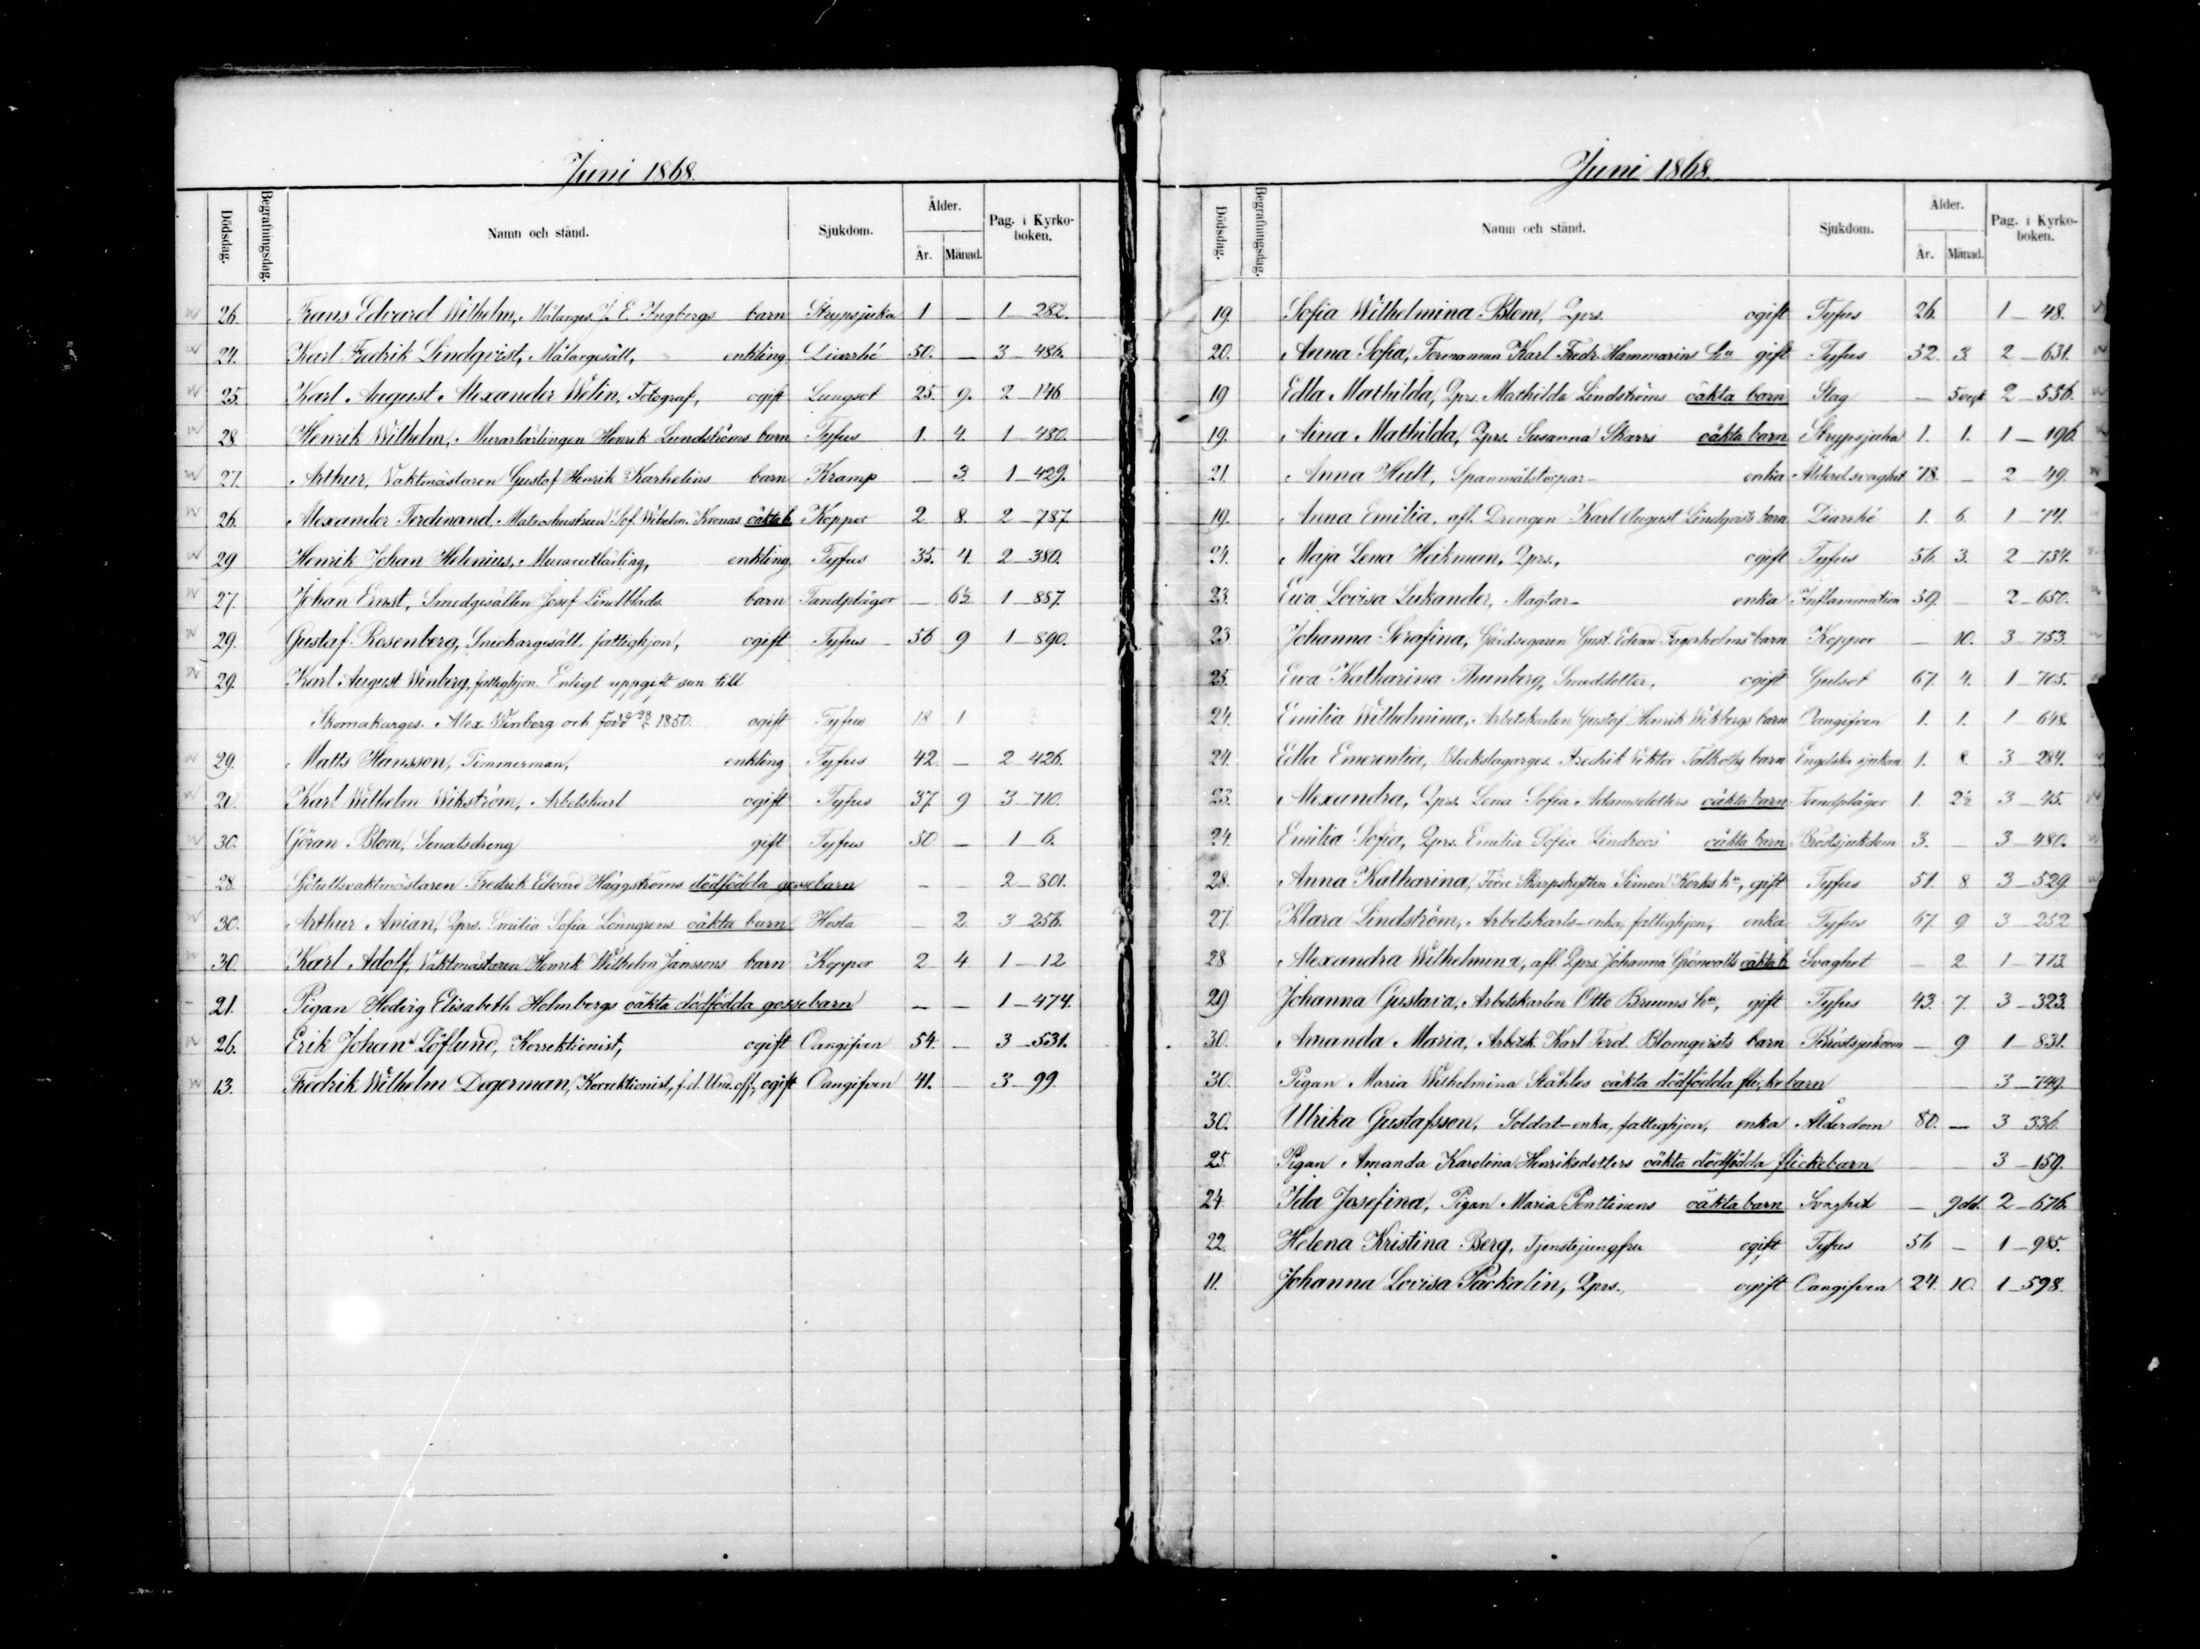 Juni 1868.
Dödsdag. Begrafningsdag. Namn och stånd. Sjukdom. Ålder. År. Månad. Pag. i Kyrkoboken.
26. Frans Edvard Wilhelm, Målarges. J. E. Ingbergs barn Strypsjuka 1 — 1 — 282.
24. Karl Fredrik Lindqvist, Målargesäll, enkling Diarrhé 50. — 3 — 486.
25. Karl August Alexander Welin, Fotograf, ogift Lungsot 25. 9. 2 146
28 Henrik Wilhelm, Murarlärlingen Henrik Lundströms barn Tyfus 1. 4. 1 — 480.
27. Arthur, Vaktmästaren Gustaf Henrik Karhelins barn Kramp — 3. 1 — 429.
26. Alexander Ferdinand, Matroshustrun Sof. Wilhelm. Kronas oäkta b. Koppor 2. 8. 2 — 787.
29 Henrik Johan Helenius, Murarelärling, enkling Tyfus 35. 4. 2 — 380.
27. Johan Ernst, Smedgesällen Josef Lindblads barn Tandplågor — 6½ 1 — 857.
29. Gustaf Rosenberg, Snickargesäll, fattighjon, ogift Tyfus 56 9 1 — 890.
29. Karl August Winberg, fattighjon. Enligt uppgift son till
Skomakarges. Alex Winberg och född 1850. ogift Tyfus 18 1
29. Matts Hansson, Timmerman, enkling Tyfus 42. — 2 — 426.
20. Karl Wilhelm Wikström, Arbetskarl ogift Tyfus 37. 9 3 — 710.
30. Göran Blom, Senatsdreng gift Tyfus 50 — 1 — 6.
28. Sjötullsvaktmästaren Fredrik Edvard Häggströms dödfödda gossebarn — — 2 — 801.
30. Arthur Anian, Qprs. Emilia Sofia Lönngrens oäkta barn Hosta — 2. 3 — 256.
30. Karl Adolf, Vaktmästaren Henrik Wilhelm Janssons barn Koppor 2 4 1 — 12
21. Pigan Hedvig Elisabeth Holmbergs oäkta dödfödda gossebarn — — 1 — 474.
26. Erik Johan Löflund, Korrektionist, ogift Oangifven 54. — 3 — 531.
13. Fredrik Wilhelm Degerman, Korrektionist, f. d. Und. off., ogift Oangifven 41. — 3 — 99.
Juni 1868.
Dödsdag. Begrafningsdag. Namn och stånd. Sjukdom. Ålder. År. Månad. Pag. i Kyrkoboken.
19. Sofia Wilhelmina Blom, Qprs. ogift Tyfus 26. 1 — 48.
20. Anna Sofia, Formannen Karl Fredr. Hammarins hu gift Tyfus 52. 3. 2 — 631.
19 Edla Mathilda, Qprs. Mathilda Lindströms oäkta barn Slag — 2 — 536.
19. Aina Mathilda, Qprs. Susanna Skarrs oäkta barn Strypsjuka 1. 1. 1 — 196.
21. Anna Hult, Spanmålstorpar- enka Ålderdsvaghet 78. — 2 — 49.
19. Anna Emilia, afl. Drengen Karl August Lindqvists barn Diarrhé 1. 6. 1 — 74.
24. Maja Lena Heikman, Qprs., ogift Tyfus 56. 3. 2 — 734.
23. Ewa Lovisa Lukander, enka Inflammation 59. — 2 — 650.
23 Johanna Serafina, Gårdsegaren Gust. Edvard Fagerholms barn Koppor — 10. 3 — 753.
25. Ewa Katharina Thunberg, Smeddotter, ogift Gulsot 67. 4. 1 — 765.
24. Emilia Wilhelmina, Arbetskarlen Gustaf Henrik Wikbergs barn Oangifven 1. 1. 1 — 648.
24. Edla Emerentia, Bleckslagarges. Fredrik Viktor barn Engelska sjukan 1. 8. 3 — 284.
23. Alexandra, Qprs. Lena Sofia Adamsdotters oäkta barn Tandplågor 1. 2½ 3 — 45.
24. Emilia Sofia, Qprs. Emilia Sofia Lindroos oäkta barn Bröstsjukdom 3. — 3 — 480.
28. Anna Katharina, Förre Skarpskytten Simon Korks hu, gift Tyfus 51. 8 3 — 529.
27. Klara Lindström, Arbetskarls-enka, fattighjon, enka Tyfus 67. 9 3 — 252
28. Alexandra Wilhelmina, afl. Qprs. Johanna Grönvalls oäkta b. Svaghet — 2. 1 — 773.
29 Johanna Gustava, Arbetskarlen Otto Bruuns hu, gift Tyfus 43. 7. 3 — 323.
30. Amanda Maria, Arbetsk. Karl Ferd. Blomqvists barn Bröstsjukdom — 9 1 — 831.
30. Pigan Maria Wilhelmina Ståhles oäkta dödfödda flickebarn — — 3 — 749.
30. Ulrika Gustafsson, Soldat-enka, fattighjon, enka Ålderdom 80. — 3 336.
25. Pigan Amanda Karolina Henriksdotters oäkta dödfödda flickebarn — — 3 — 159.
24. Ida Josefina, Pigan Maria Penttinens oäkta barn Svaghet — 9 dd. 2 — 676.
22. Helena Kristina Berg, Tjenstejungfru ogift Tyfus 56 — 1 — 985.
11. Johanna Lovisa Packalin, Qprs., ogift Oangifven 24. 10. 1 — 598.